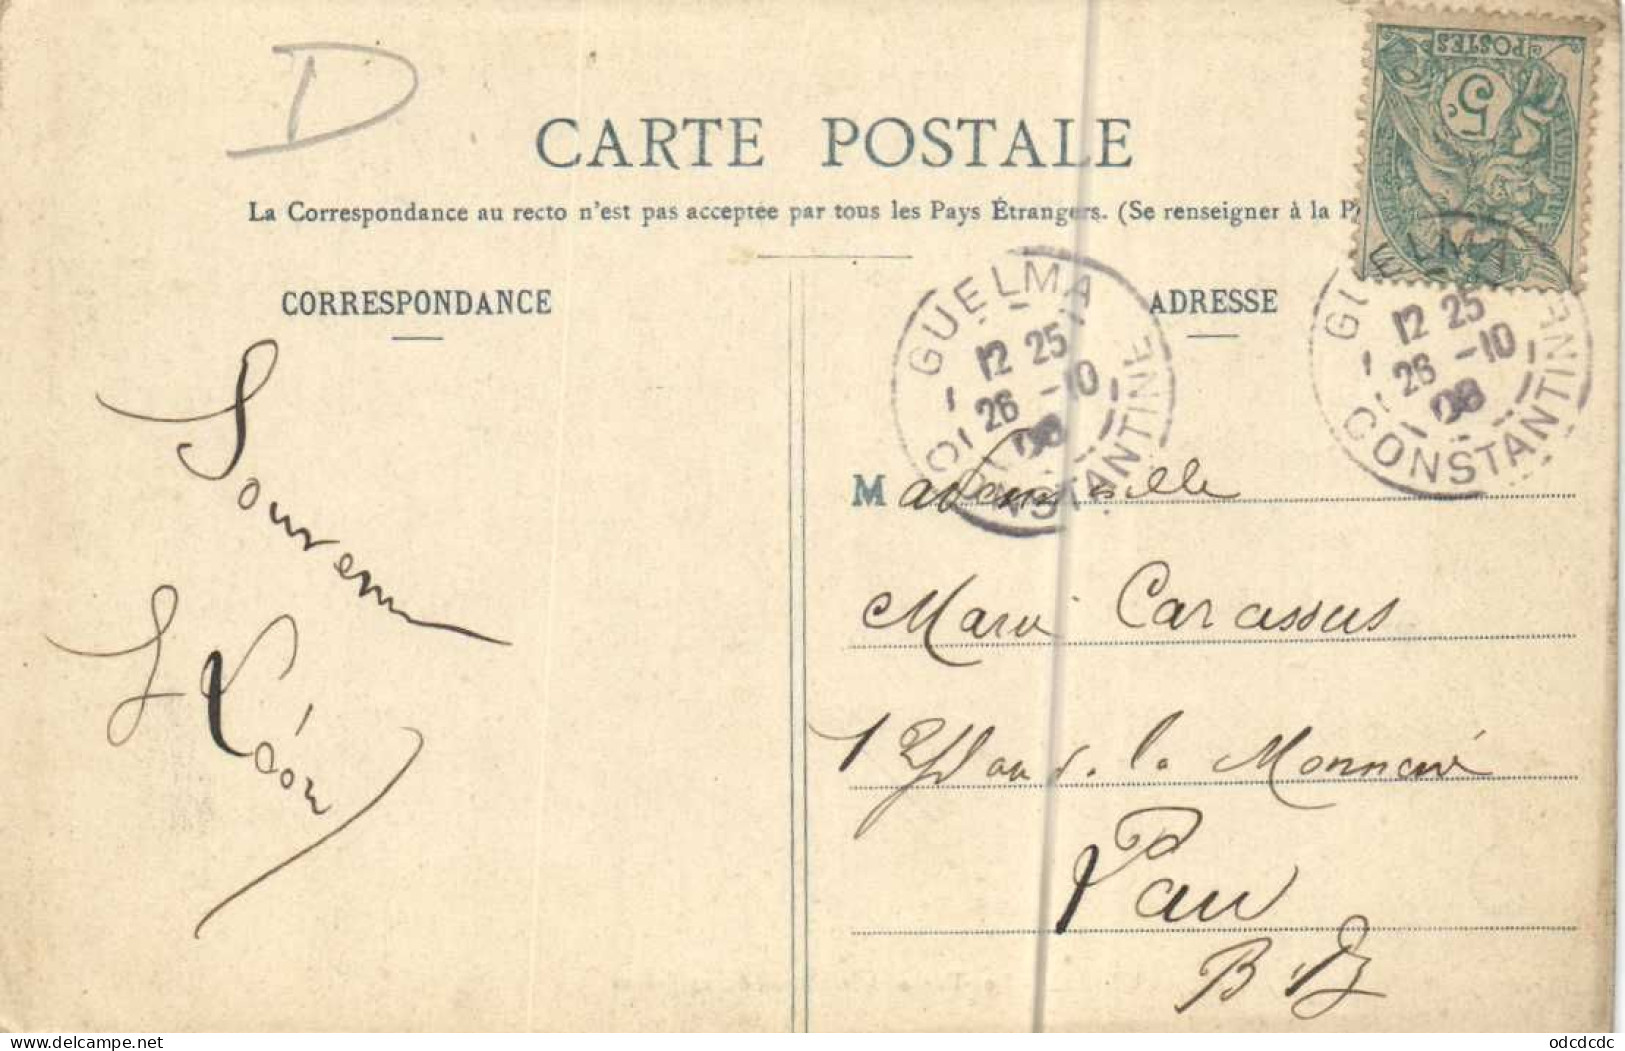 D
CARTE POSTALE
La Correspondance au recto n'est pas acceptée par tous les Pays Étrangers. (Se renseigner à la P
POSTES
5c
CORRESPONDANCE
ADRESSE
GUELMA
12 25
26 -10
08
CONSTANTINE
GUELMA
12 25
26 -10
08
CONSTANTINE
Souvenir
Léon
Mademoiselle
Marie Carassus
1 de la Monnaie
Pau
B. P.
delcampe.net
odcdcdc